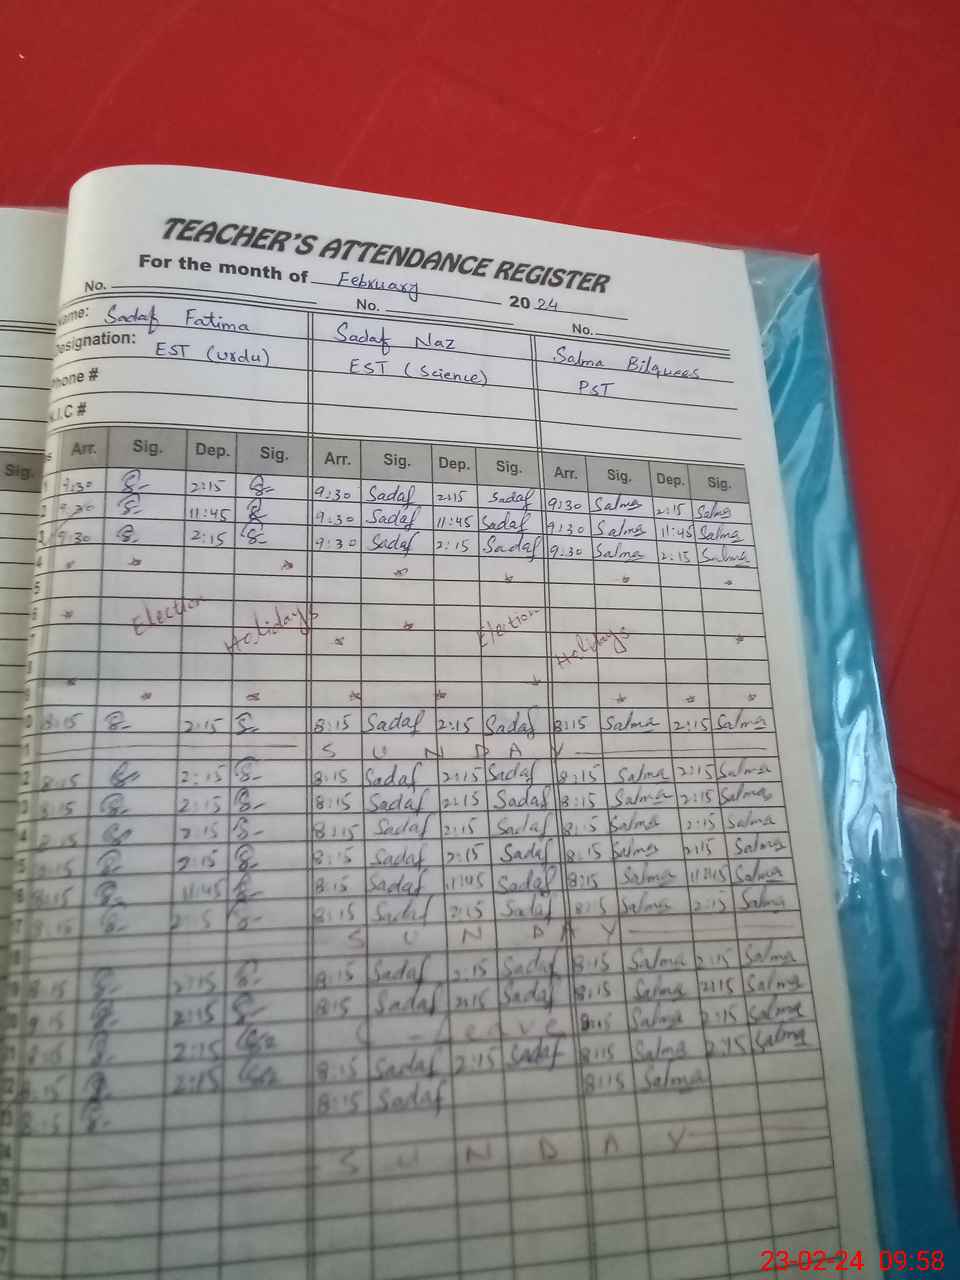 TEACHER'S ATTENDANCE REGISTER
For the month of February 2024
No. No. No.
Name: Sadaf Fatima Sadaf Naz Salma Bilquees
Designation: EST (Urdu) EST (Science) PST
Phone #
N.I.C #
Sig. Arr. Sig. Dep. Sig. Arr. Sig. Dep. Sig. Arr. Sig. Dep. Sig.
1 9:30 2:15 9:30 Sadaf 2:15 Sadaf 9:30 Salma 2:15 Salma
2 9:30 11:45 9:30 Sadaf 11:45 Sadaf 9:30 Salma 11:45 Salma
3 9:30 2:15 9:30 Sadaf 2:15 Sadaf 9:30 Salma 2:15 Salma
4
5
6 Election Holidays Election Holidays
7
8
9
10 8:15 2:15 8:15 Sadaf 2:15 Sadaf 8:15 Salma 2:15 Salma
11 SUNDAY
12 8:15 2:15 8:15 Sadaf 2:15 Sadaf 8:15 Salma 2:15 Salma
13 8:15 2:15 8:15 Sadaf 2:15 Sadaf 8:15 Salma 2:15 Salma
14 2:15 8:15 Sadaf 2:15 Sadaf 8:15 Salma 2:15 Salma
15 2:15 8:15 Sadaf 2:15 Sadaf 8:15 Salma 2:15 Salma
16 8:15 11:45 8:15 Sadaf 11:45 Sadaf 8:15 Salma 11:45 Salma
17 8:15 Sadaf 2:15 Sadaf 8:15 Salma 2:15 Salma
18 SUNDAY
19 8:15 2:15 8:15 Sadaf 2:15 Sadaf 8:15 Salma 2:15 Salma
20 2:15 8:15 Sadaf 2:15 Sadaf 8:15 Salma 2:15 Salma
21 8:15 2:15 Leave 8:15 Salma 2:15 Salma
22 8:15 2:15 8:15 Sadaf 2:15 Sadaf 8:15 Salma 2:15 Salma
23 8:15 8:15 Sadaf 8:15 Salma
24
SUNDAY
23-02-24 09:58